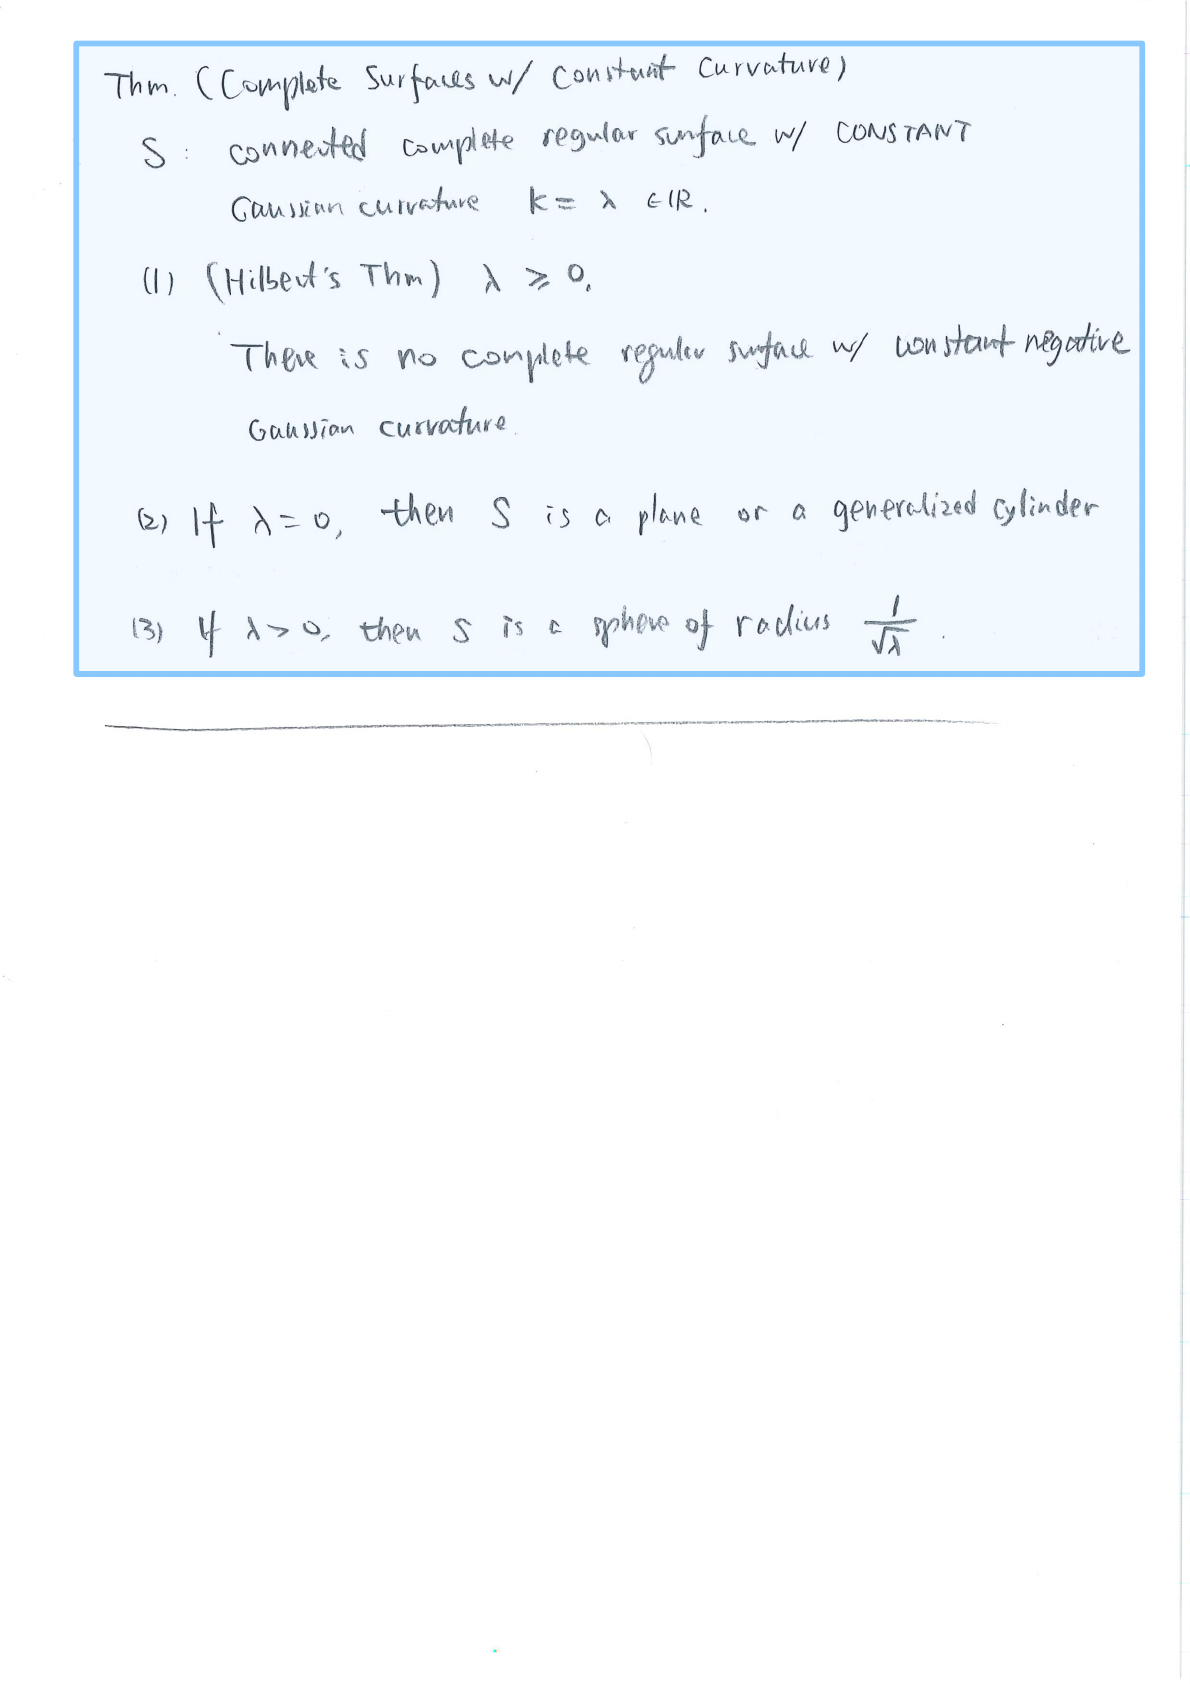 Thm. (Complete Surfaces w/ Constant Curvature)
S : connected complete regular surface w/ CONSTANT
Gaussian curvature k = λ ∈ ℝ.
(1) (Hilbert's Thm) λ ≥ 0.
There is no complete regular surface w/ constant negative
Gaussian curvature.
(2) If λ = 0, then S is a plane or a generalized cylinder
(3) If λ > 0, then S is a sphere of radius 1/√λ.